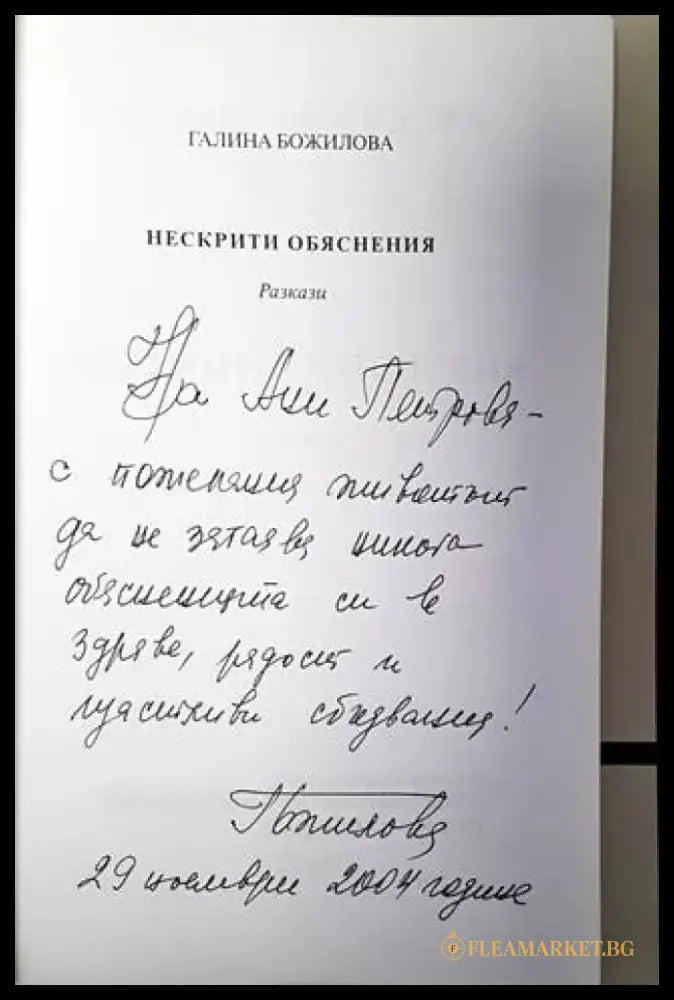 ГАЛИНА БОЖИЛОВА
НЕСКРИТИ ОБЯСНЕНИЯ
Разкази
На Ани Петрова -
с пожелания животът
да не затаява никога
обясненията си в
здраве, радост и
щастливи сбъдвания!
Божилова
29 ноември 2004 година
FLEAMARKET.BG